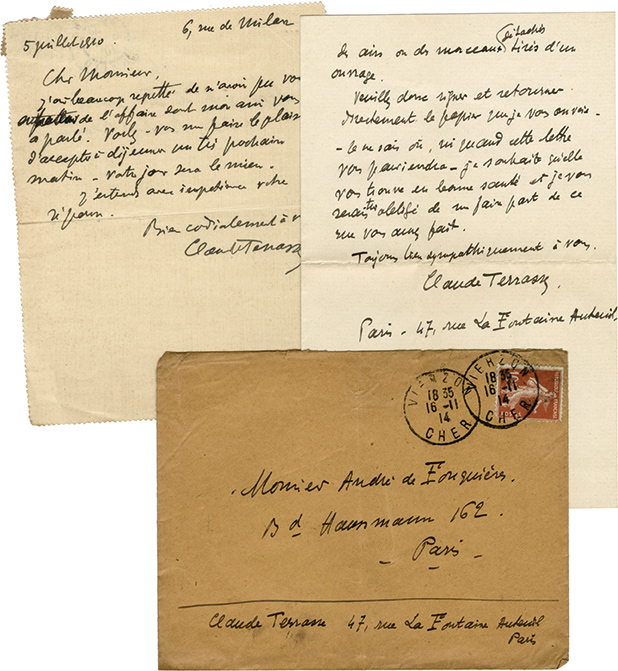 6, rue de Milan
5 juillet 1910.
Cher Monsieur,
J'ai beaucoup regretté de n'avoir pu vous
de l'affaire dont mon ami vous
a parlé. Voulez-vous me faire le plaisir
d'accepter à déjeuner un
matin - votre jour sera le mien.
J'attends avec impatience votre
réponse.
Bien cordialement à v
Claude Terrasse
des airs ou des morceaux détachés tirés d'un
ouvrage.
Veuillez donc signer et retourner
directement le papier que je vous envoie -
- Je ne sais où, ni quand cette lettre
vous parviendra - je souhaite qu'elle
vous trouve en bonne santé et je vous
serais très obligé de me faire part de ce
que vous aurez fait.
Toujours bien sympathiquement à vous.
Claude Terrasse
Paris - 47, rue La Fontaine Auteuil.
VIERZON
18 35
16 -11
14
CHER
VIERZON
18 35
16 -11
14
CHER
Monsieur André de Fouquières.
Bd Haussmann 162.
- Paris -
Claude Terrasse 47, rue La Fontaine Auteuil
Paris